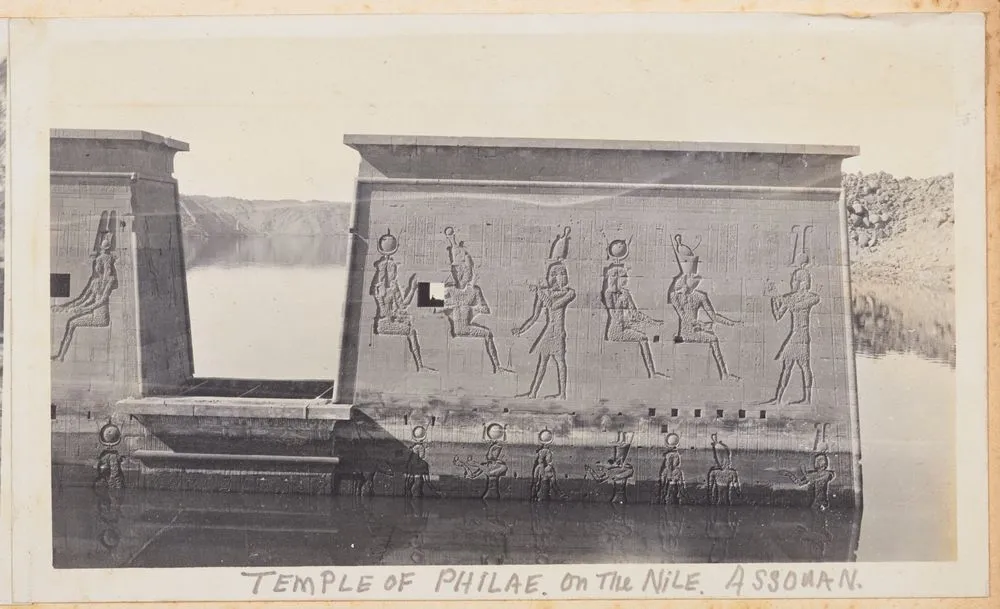 TEMPLE OF PHILAE. on THE NILE. ASSOUAN.